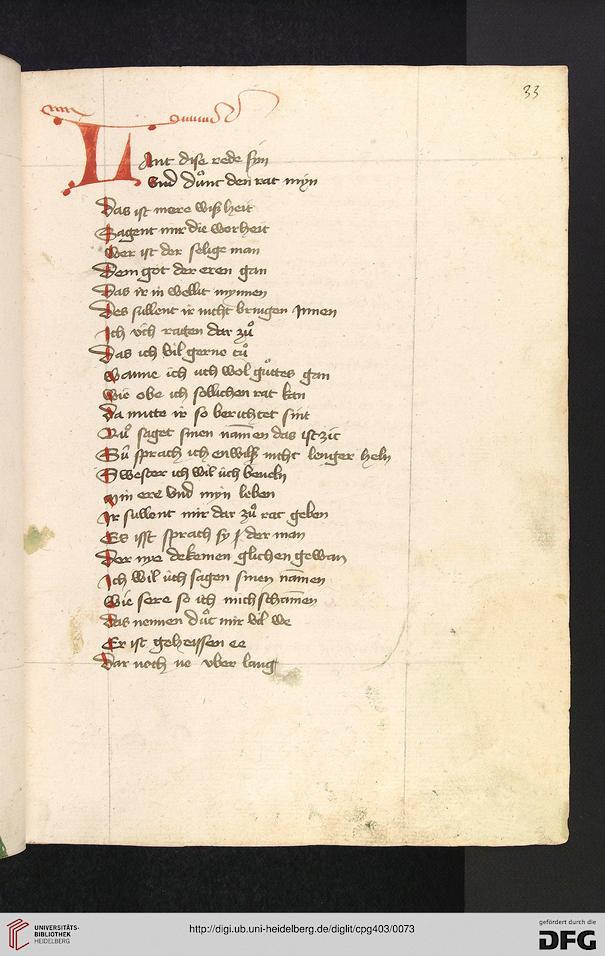 33
Lant dise rede syn
Vnd důnt den rat myn
Das ist mere wißheit
Sagent mir die worheit
Wer ist der selige man
Dem got der eren gan
Das ir in wellit mynnen
Des sullent ir nicht bringen Innen
Ich vch raten dar zů
Das ich vil gerne tů
Wanne ich uch wol gůttes gan
Wie obe ich sollichen rat kan
Da mitte ir so berichtet sint
Nů saget sinen namen das ist zit
Sů sprach ich enwilß nicht lenger heln
Swester ich wil uch beueln
Min ere vnd myn leben
Ir sullent mir dar zů rat geben
Es isst sprach sy der man
Der nye dekeinen glichen gewan
Ich wil uch sagen sinen namen
Wie sere so ich mich schamen
Das nennen důt mir vil we
Er ist geheissen ee
Dar noch ne vber lang
UNIVERSITÄTS-
BIBLIOTHEK
HEIDELBERG
http://digi.ub.uni-heidelberg.de/diglit/cpg403/0073
gefördert durch die
DFG